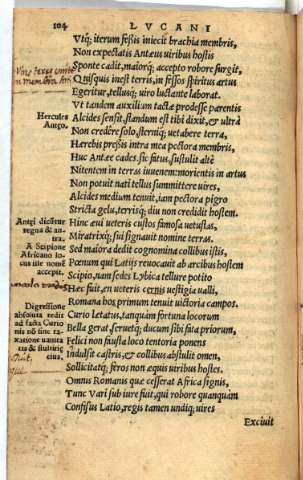 104 LVCANI
Vtq; iterum fessis iniecit brachia membris,
Non expectatis Antæus viribus hostis
Sponte cadit, maiorq; accepto robore surgit,
Quisquis inest terris, in fessos spiritus artus
Egeritur, tellusq; viro luctante laborat.
Vt tandem auxilium tactæ prodesse parentis
Alcides sensit, standum est tibi dixit, & vltrà
Non credêre solo, sterniq; vetabere terra,
Hærebis pressis intra mea pectora membris,
Huc Antæe cades. sic fatus, sustulit altè
Nitentem in terras iuuenem: morientis in artus
Non potuit nati tellus summittere vires,
Alcides medium tenuit, iam pectora pigro
Stricta gelu, terrisq; diu non credidit hostem.
Hinc æui veteris custos famosa vetustas,
Miratrixq; sui signauit nomine terras.
Sed maiora dedit cognomina collibus istis,
Pœnum qui Latijs reuocauit ab arcibus hostem
Scipio, nam sedes Lybica tellure potito
Hæc fuit, en veteris cernis vestigia valli,
Romana hos primum tenuit victoria campos.
Curio lætatus, tanquàm fortuna locorum
Bella gerat, seruetq; ducum sibi fata priorum,
Felici non fausta loco tentoria ponens
Indulsit castris, & collibus abstulit omen,
Sollicitatq; feros non æquis viribus hostes.
Omnis Romanus quæ cesserat Africa signis,
Tunc Vari sub iure fuit, qui robore quanquam
Confisus Latio, regis tamen undiq; vires
Exciuit
Hercules
Antgo.
Antęi dictę
regna & an
tra.
A Scipione
Africano lo-
cus iste nomē
accepit.
Digressione
absoluta redit
ad facta Curio
nis